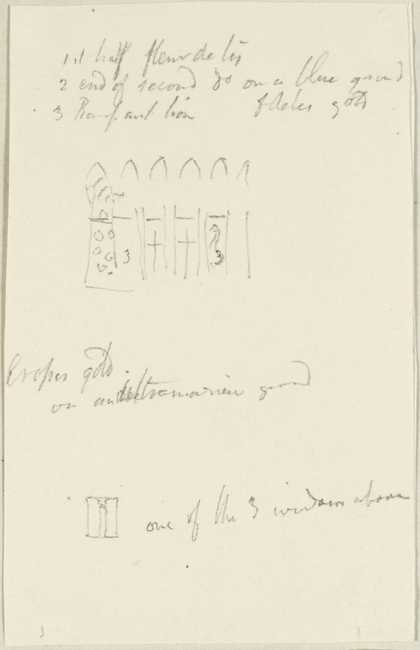 1.1 half fleur de lis
2 end of second do on a blue ground
3 Rampant lion gold
3
3
Crosses gold
on an ultramarine ground
one of the 3 windows above